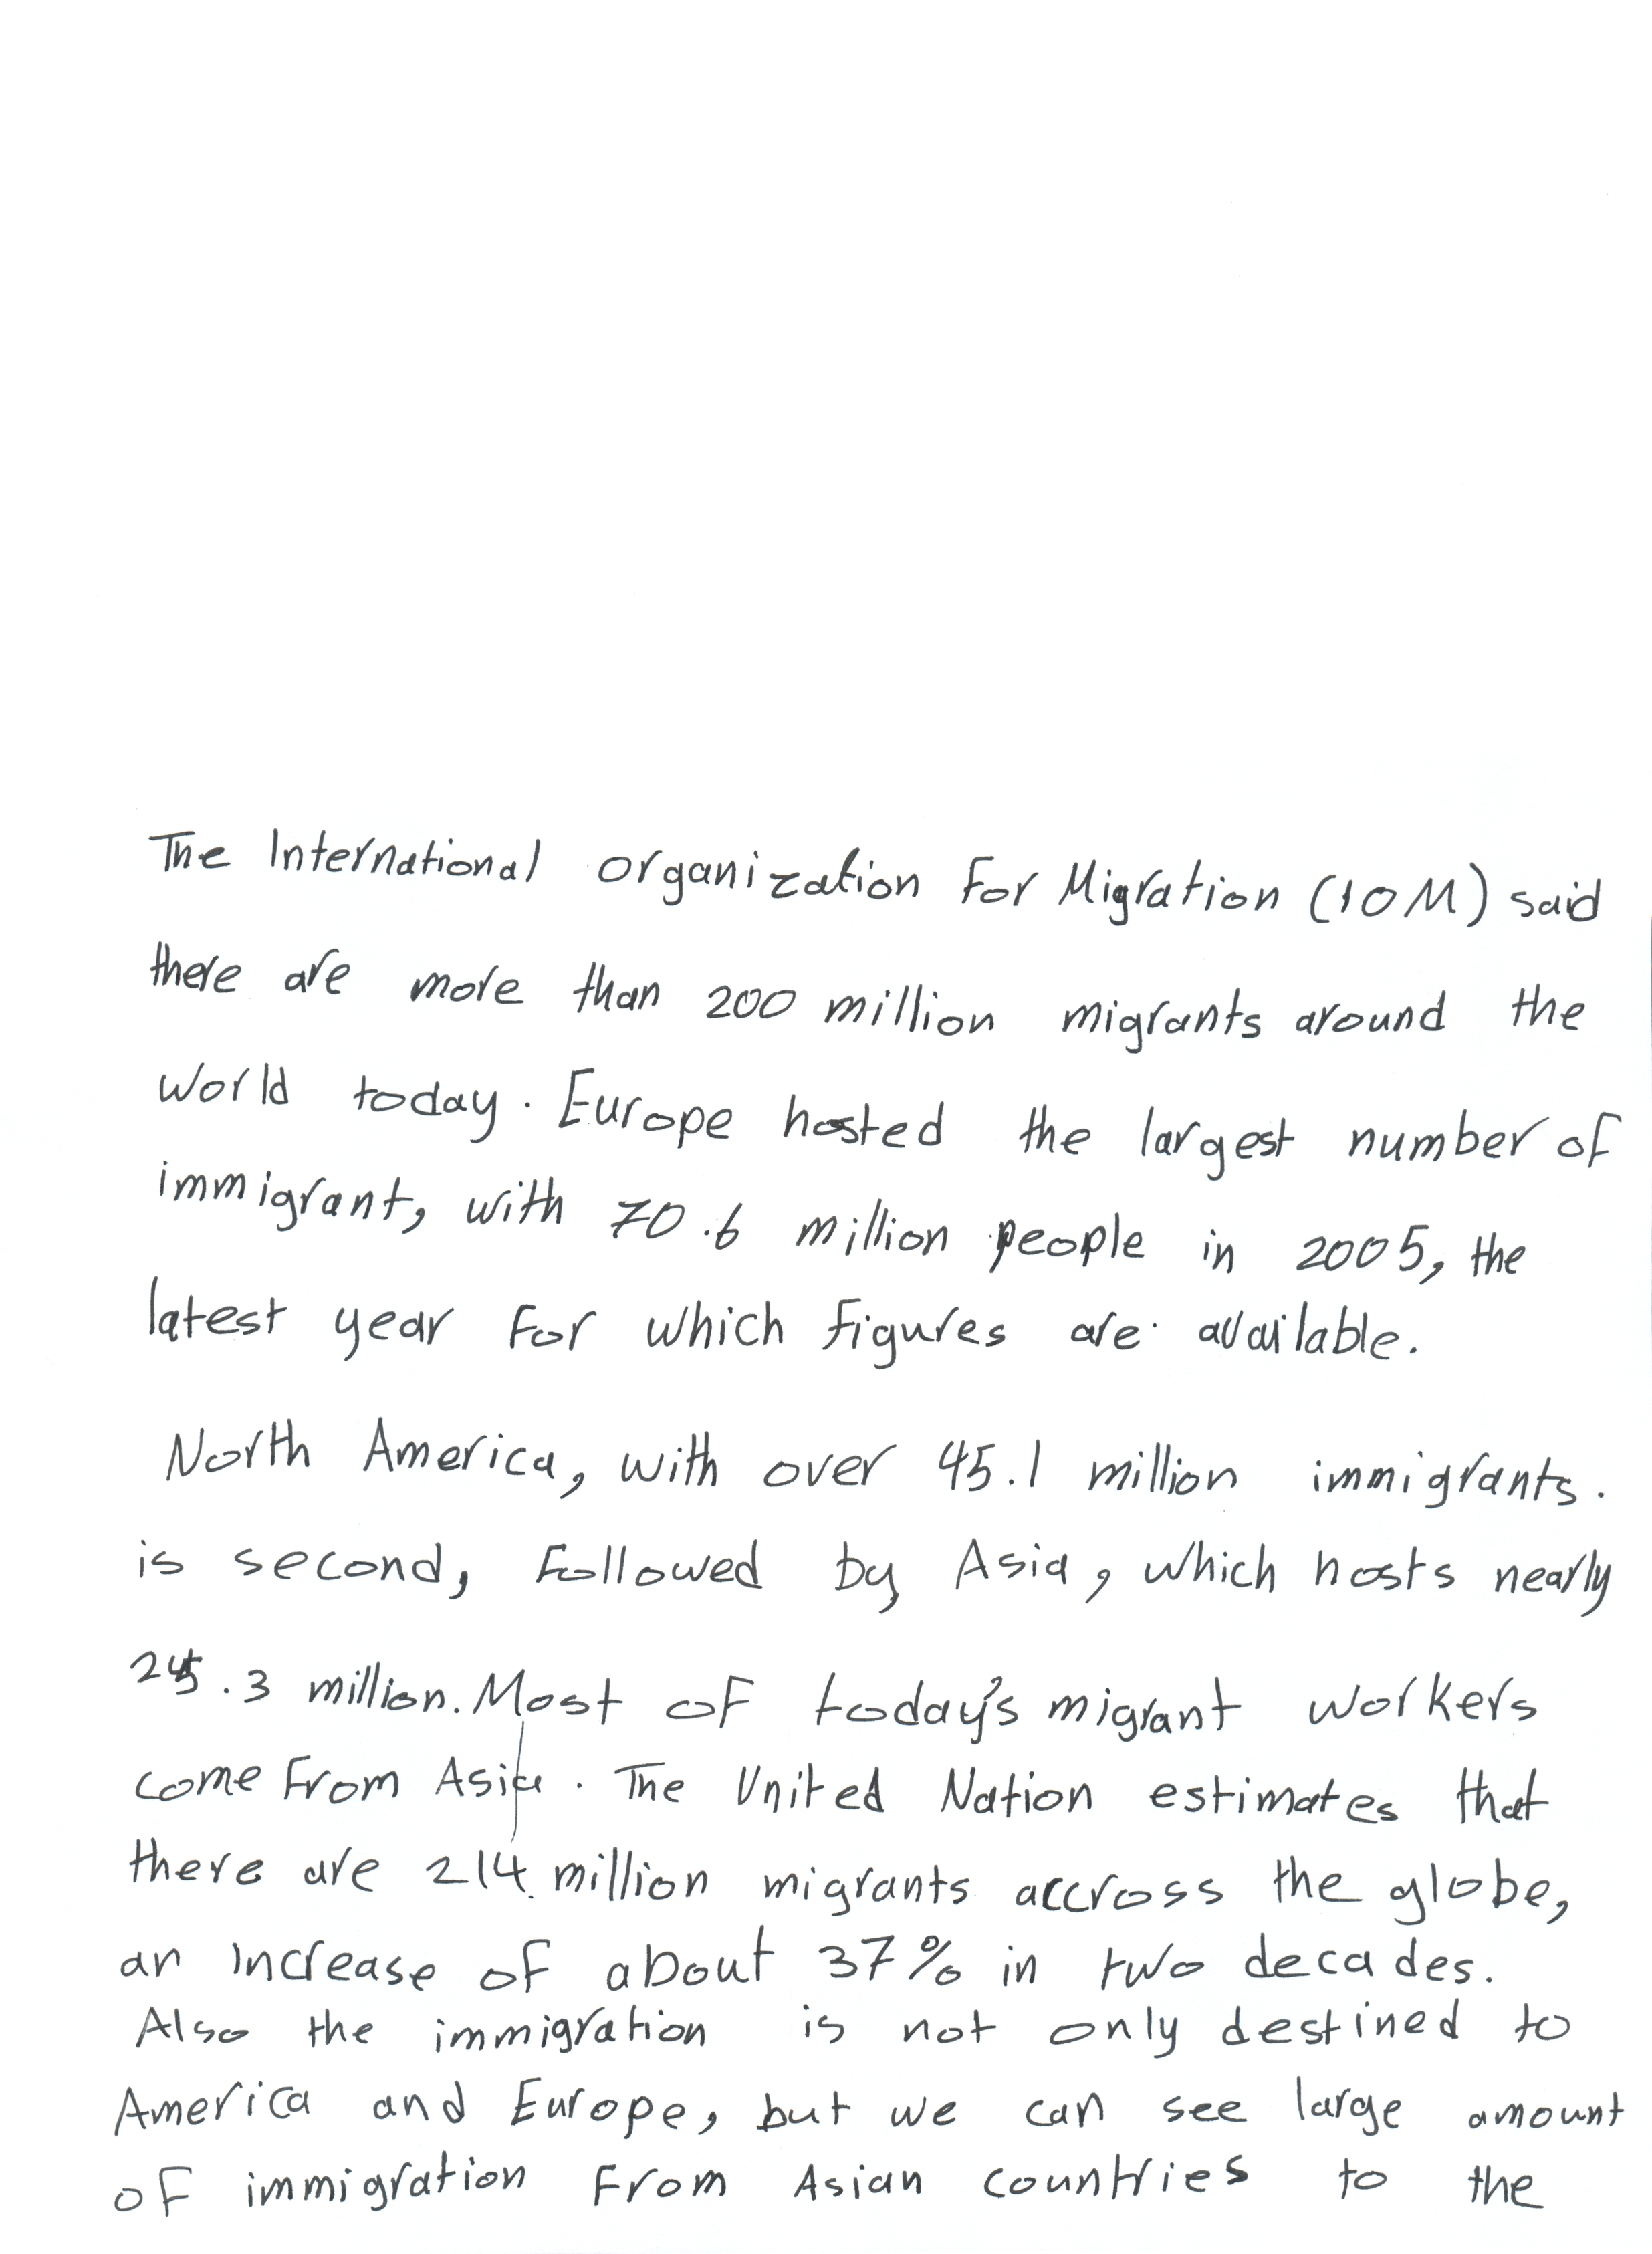 The International organization For Migration (IOM) said
there are more than 200 million migrants around the
world today. Europe hosted the largest number of
immigrant, with 70.6 million people in 2005, the
latest year for which figures are available.
North America, with over 45.1 million immigrants.
is second, Followed by Asia, which hosts nearly
25.3 million. Most of today's migrant workers
come From Asia. The United Nation estimates that
there are 214 million migrants accross the globe,
an increase of about 37% in two decades.
Also the immigration is not only destined to
America and Europe, but we can see large amount
of immigration From Asian countries to the